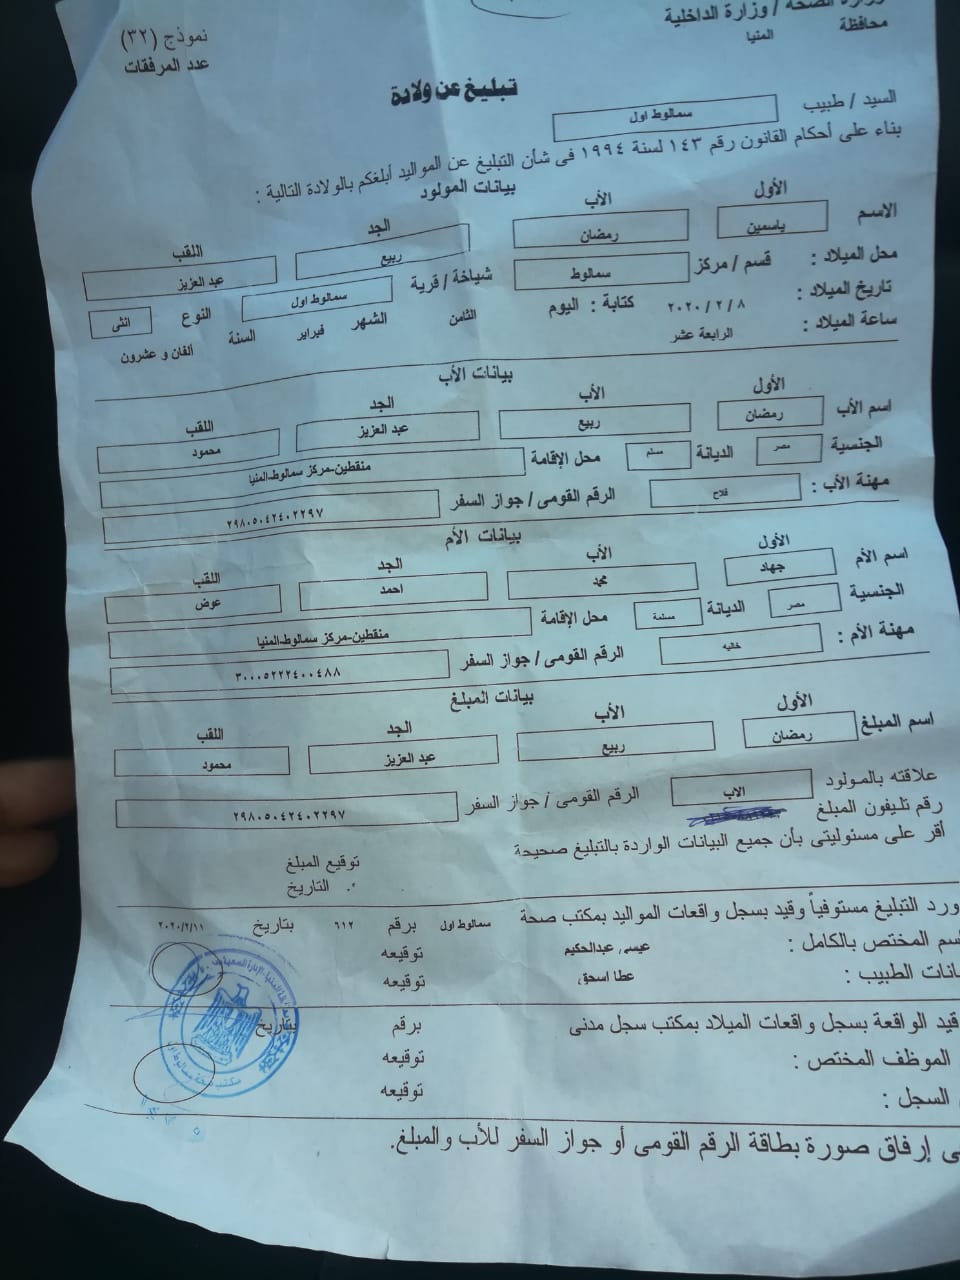 وزارة الصحة / وزارة الداخلية
محافظة المنيا
نموذج (٣٢)
عدد المرفقات
تبليغ عن ولادة
السيد / طبيب سمالوط اول
بناء على أحكام القانون رقم ١٤٣ لسنة ١٩٩٤ فى شأن التبليغ عن المواليد أبلغكم بالولادة التالية :
بيانات المولود
الأول الأب الجد اللقب
الاسم ياسمين رمضان ربيع عبد العزيز
محل الميلاد : قسم / مركز سمالوط شياخة / قرية سمالوط اول النوع انثى
تاريخ الميلاد : ٢٠٢٠ / ٢ / ٨ كتابة : اليوم الثامن الشهر فبراير السنة ألفان و عشرون
ساعة الميلاد : الرابعة عشر
بيانات الأب
الأول الأب الجد اللقب
اسم الأب رمضان ربيع عبد العزيز محمود
الجنسية مصر الديانة مسلم محل الإقامة منقطين-مركز سمالوط-المنيا
مهنة الأب : فلاح الرقم القومى / جواز السفر ٢٩٨٠٥٠٤٢٤٠٢٢٩٧
بيانات الأم
الأول الأب الجد اللقب
اسم الأم جهاد محمد احمد عوض
الجنسية مصر الديانة مسلمة محل الإقامة منقطين-مركز سمالوط-المنيا
مهنة الأم : خاليه الرقم القومى / جواز السفر ٣٠٠٠٥٢٢٢٤٠٠٤٨٨
بيانات المبلغ
الأول الأب الجد اللقب
اسم المبلغ رمضان ربيع عبد العزيز محمود
علاقته بالمولود الاب الرقم القومى / جواز السفر ٢٩٨٠٥٠٤٢٤٠٢٢٩٧
رقم تليفون المبلغ
أقر على مسئوليتى بأن جميع البيانات الواردة بالتبليغ صحيحة
توقيع المبلغ
التاريخ
ورد التبليغ مستوفياً وقيد بسجل واقعات المواليد بمكتب صحة سمالوط اول برقم ٦١٢ بتاريخ ٢٠٢٠/٢/١١
اسم المختص بالكامل : عيسى عبدالحكيم توقيعه
بيانات الطبيب : عطا اسحق توقيعه
قيد الواقعة بسجل واقعات الميلاد بمكتب سجل مدنى برقم بتاريخ
الموظف المختص : توقيعه
السجل : توقيعه
إرفاق صورة بطاقة الرقم القومى أو جواز السفر للأب والمبلغ.